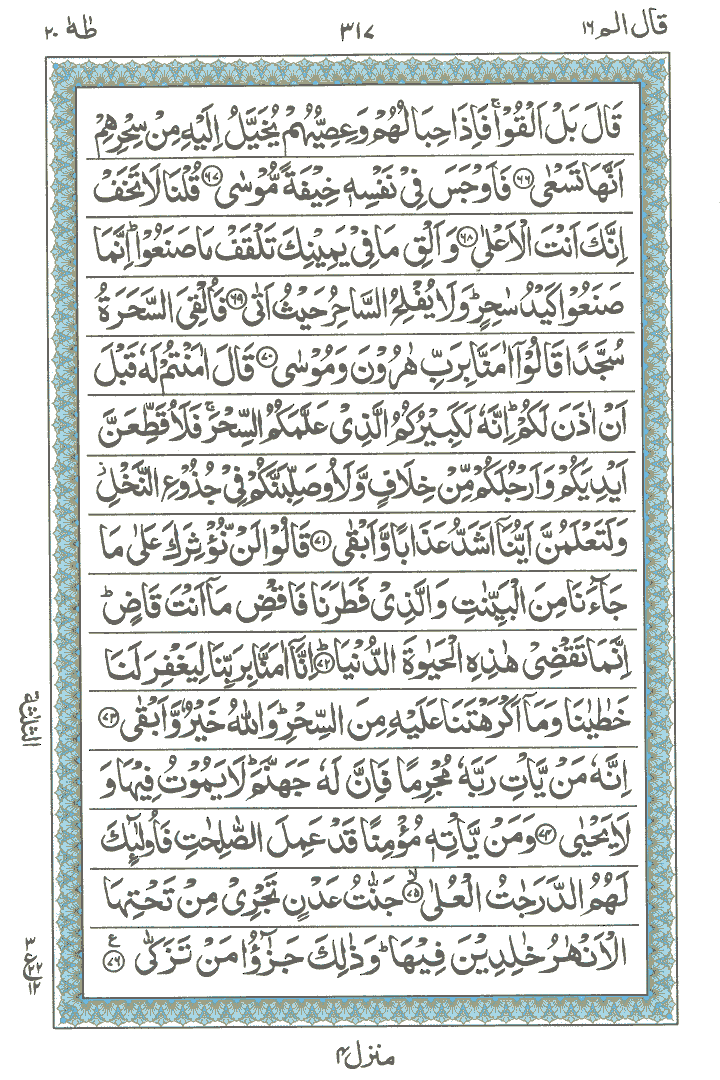 قال الم ١٦ ٣١٧ طٰهٰ ٢٠
قَالَ بَلْ اَلْقُوْا ۚ فَاِذَا حِبَالُهُمْ وَعِصِيُّهُمْ يُخَيَّلُ اِلَيْهِ مِنْ سِحْرِهِمْ
اَنَّهَا تَسْعٰى ﴿٦٦﴾ فَاَوْجَسَ فِيْ نَفْسِهٖ خِيْفَةً مُّوْسٰى ﴿٦٧﴾ قُلْنَا لَا تَخَفْ
اِنَّكَ اَنْتَ الْاَعْلٰى ﴿٦٨﴾ وَاَلْقِ مَا فِيْ يَمِيْنِكَ تَلْقَفْ مَا صَنَعُوْا ؕ اِنَّمَا
صَنَعُوْا كَيْدُ سٰحِرٍ ؕ وَلَا يُفْلِحُ السَّاحِرُ حَيْثُ اَتٰى ﴿٦٩﴾ فَاُلْقِيَ السَّحَرَةُ
سُجَّدًا قَالُوْۤا اٰمَنَّا بِرَبِّ هٰرُوْنَ وَمُوْسٰى ﴿٧٠﴾ قَالَ اٰمَنْتُمْ لَهٗ قَبْلَ
اَنْ اٰذَنَ لَكُمْ ؕ اِنَّهٗ لَكَبِيْرُكُمُ الَّذِيْ عَلَّمَكُمُ السِّحْرَ ۚ فَلَاُقَطِّعَنَّ
اَيْدِيَكُمْ وَاَرْجُلَكُمْ مِّنْ خِلَافٍ وَّلَاُوصَلِّبَنَّكُمْ فِيْ جُذُوْعِ النَّخْلِ ؗ
وَلَتَعْلَمُنَّ اَيُّنَاۤ اَشَدُّ عَذَابًا وَّاَبْقٰى ﴿٧١﴾ قَالُوْا لَنْ نُّؤْثِرَكَ عَلٰى مَا
جَآءَنَا مِنَ الْبَيِّنٰتِ وَالَّذِيْ فَطَرَنَا فَاقْضِ مَاۤ اَنْتَ قَاضٍ ؕ
اِنَّمَا تَقْضِيْ هٰذِهِ الْحَيٰوةَ الدُّنْيَا ﴿٧٢﴾ؕ اِنَّاۤ اٰمَنَّا بِرَبِّنَا لِيَغْفِرَ لَنَا
خَطٰيٰنَا وَمَاۤ اَكْرَهْتَنَا عَلَيْهِ مِنَ السِّحْرِ ؕ وَاللّٰهُ خَيْرٌ وَّاَبْقٰى ﴿٧٣﴾
اِنَّهٗ مَنْ يَّاْتِ رَبَّهٗ مُجْرِمًا فَاِنَّ لَهٗ جَهَنَّمَ ؕ لَا يَمُوْتُ فِيْهَا وَ
لَا يَحْيٰى ﴿٧٤﴾ وَمَنْ يَّاْتِهٖ مُؤْمِنًا قَدْ عَمِلَ الصّٰلِحٰتِ فَاُولٰٓئِكَ
لَهُمُ الدَّرَجٰتُ الْعُلٰى ﴿٧٥﴾ۙ جَنّٰتُ عَدْنٍ تَجْرِيْ مِنْ تَحْتِهَا
الْاَنْهٰرُ خٰلِدِيْنَ فِيْهَا ؕ وَذٰلِكَ جَزٰٓؤُا مَنْ تَزَكّٰى ﴿٧٦﴾ ع
الثلثة
٣
ع ٢٢
١٢
منزل ٤